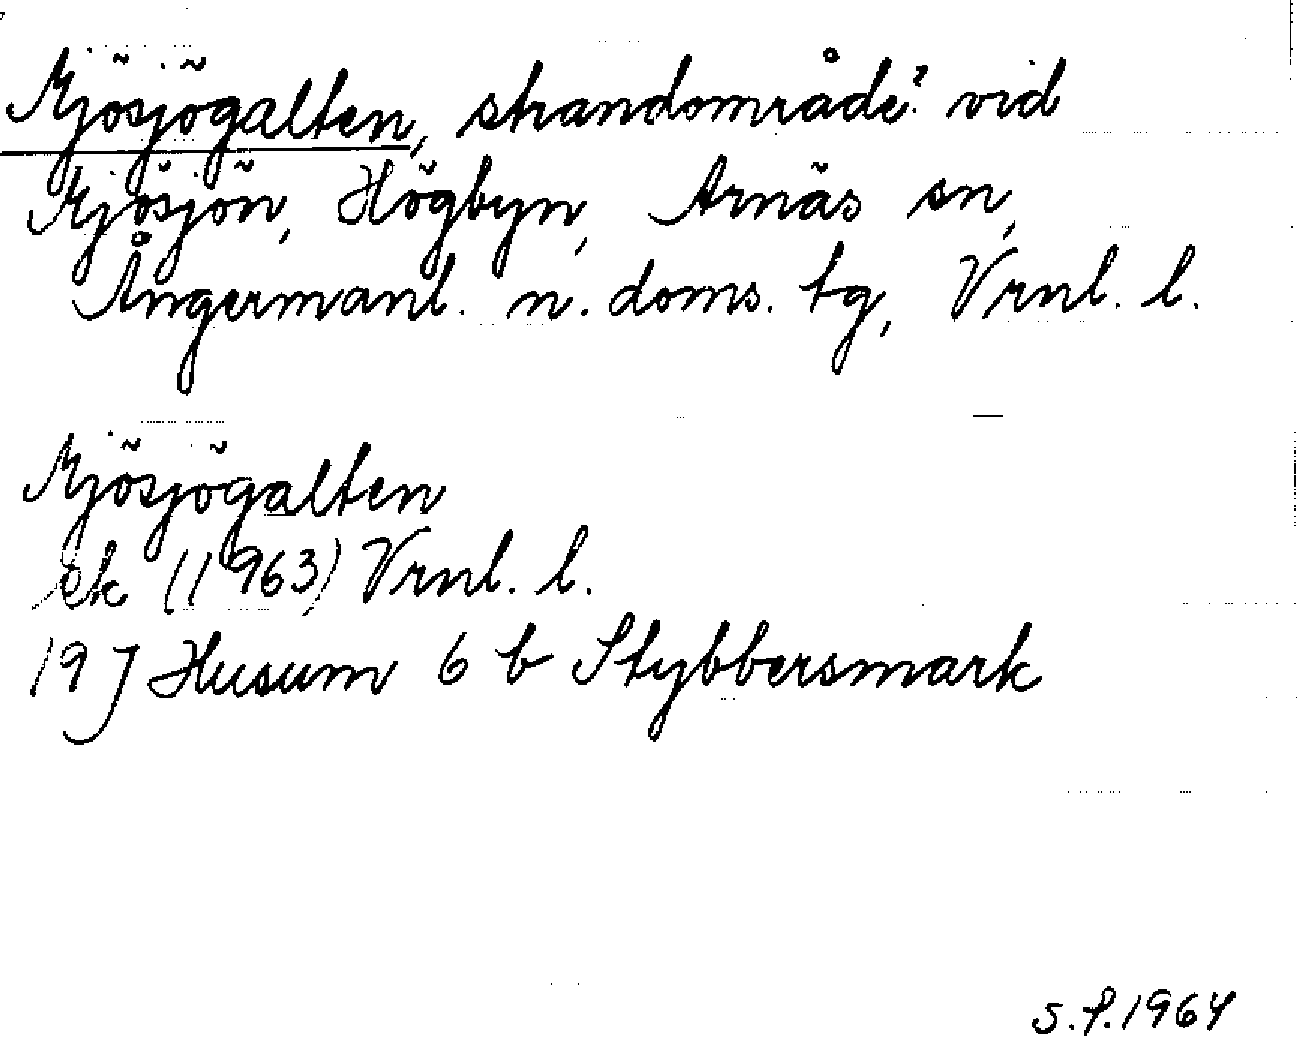 Mjösjögalten, strandområde? vid
Mjösjön, Högbyn, Arnäs sn,
Ångermanl. n. doms. tg, Vrnl. l.
Mjösjögalten
ek (1963) Vrnl. l.
19 J Husum 6 b Stybbersmark
S.F. 1964